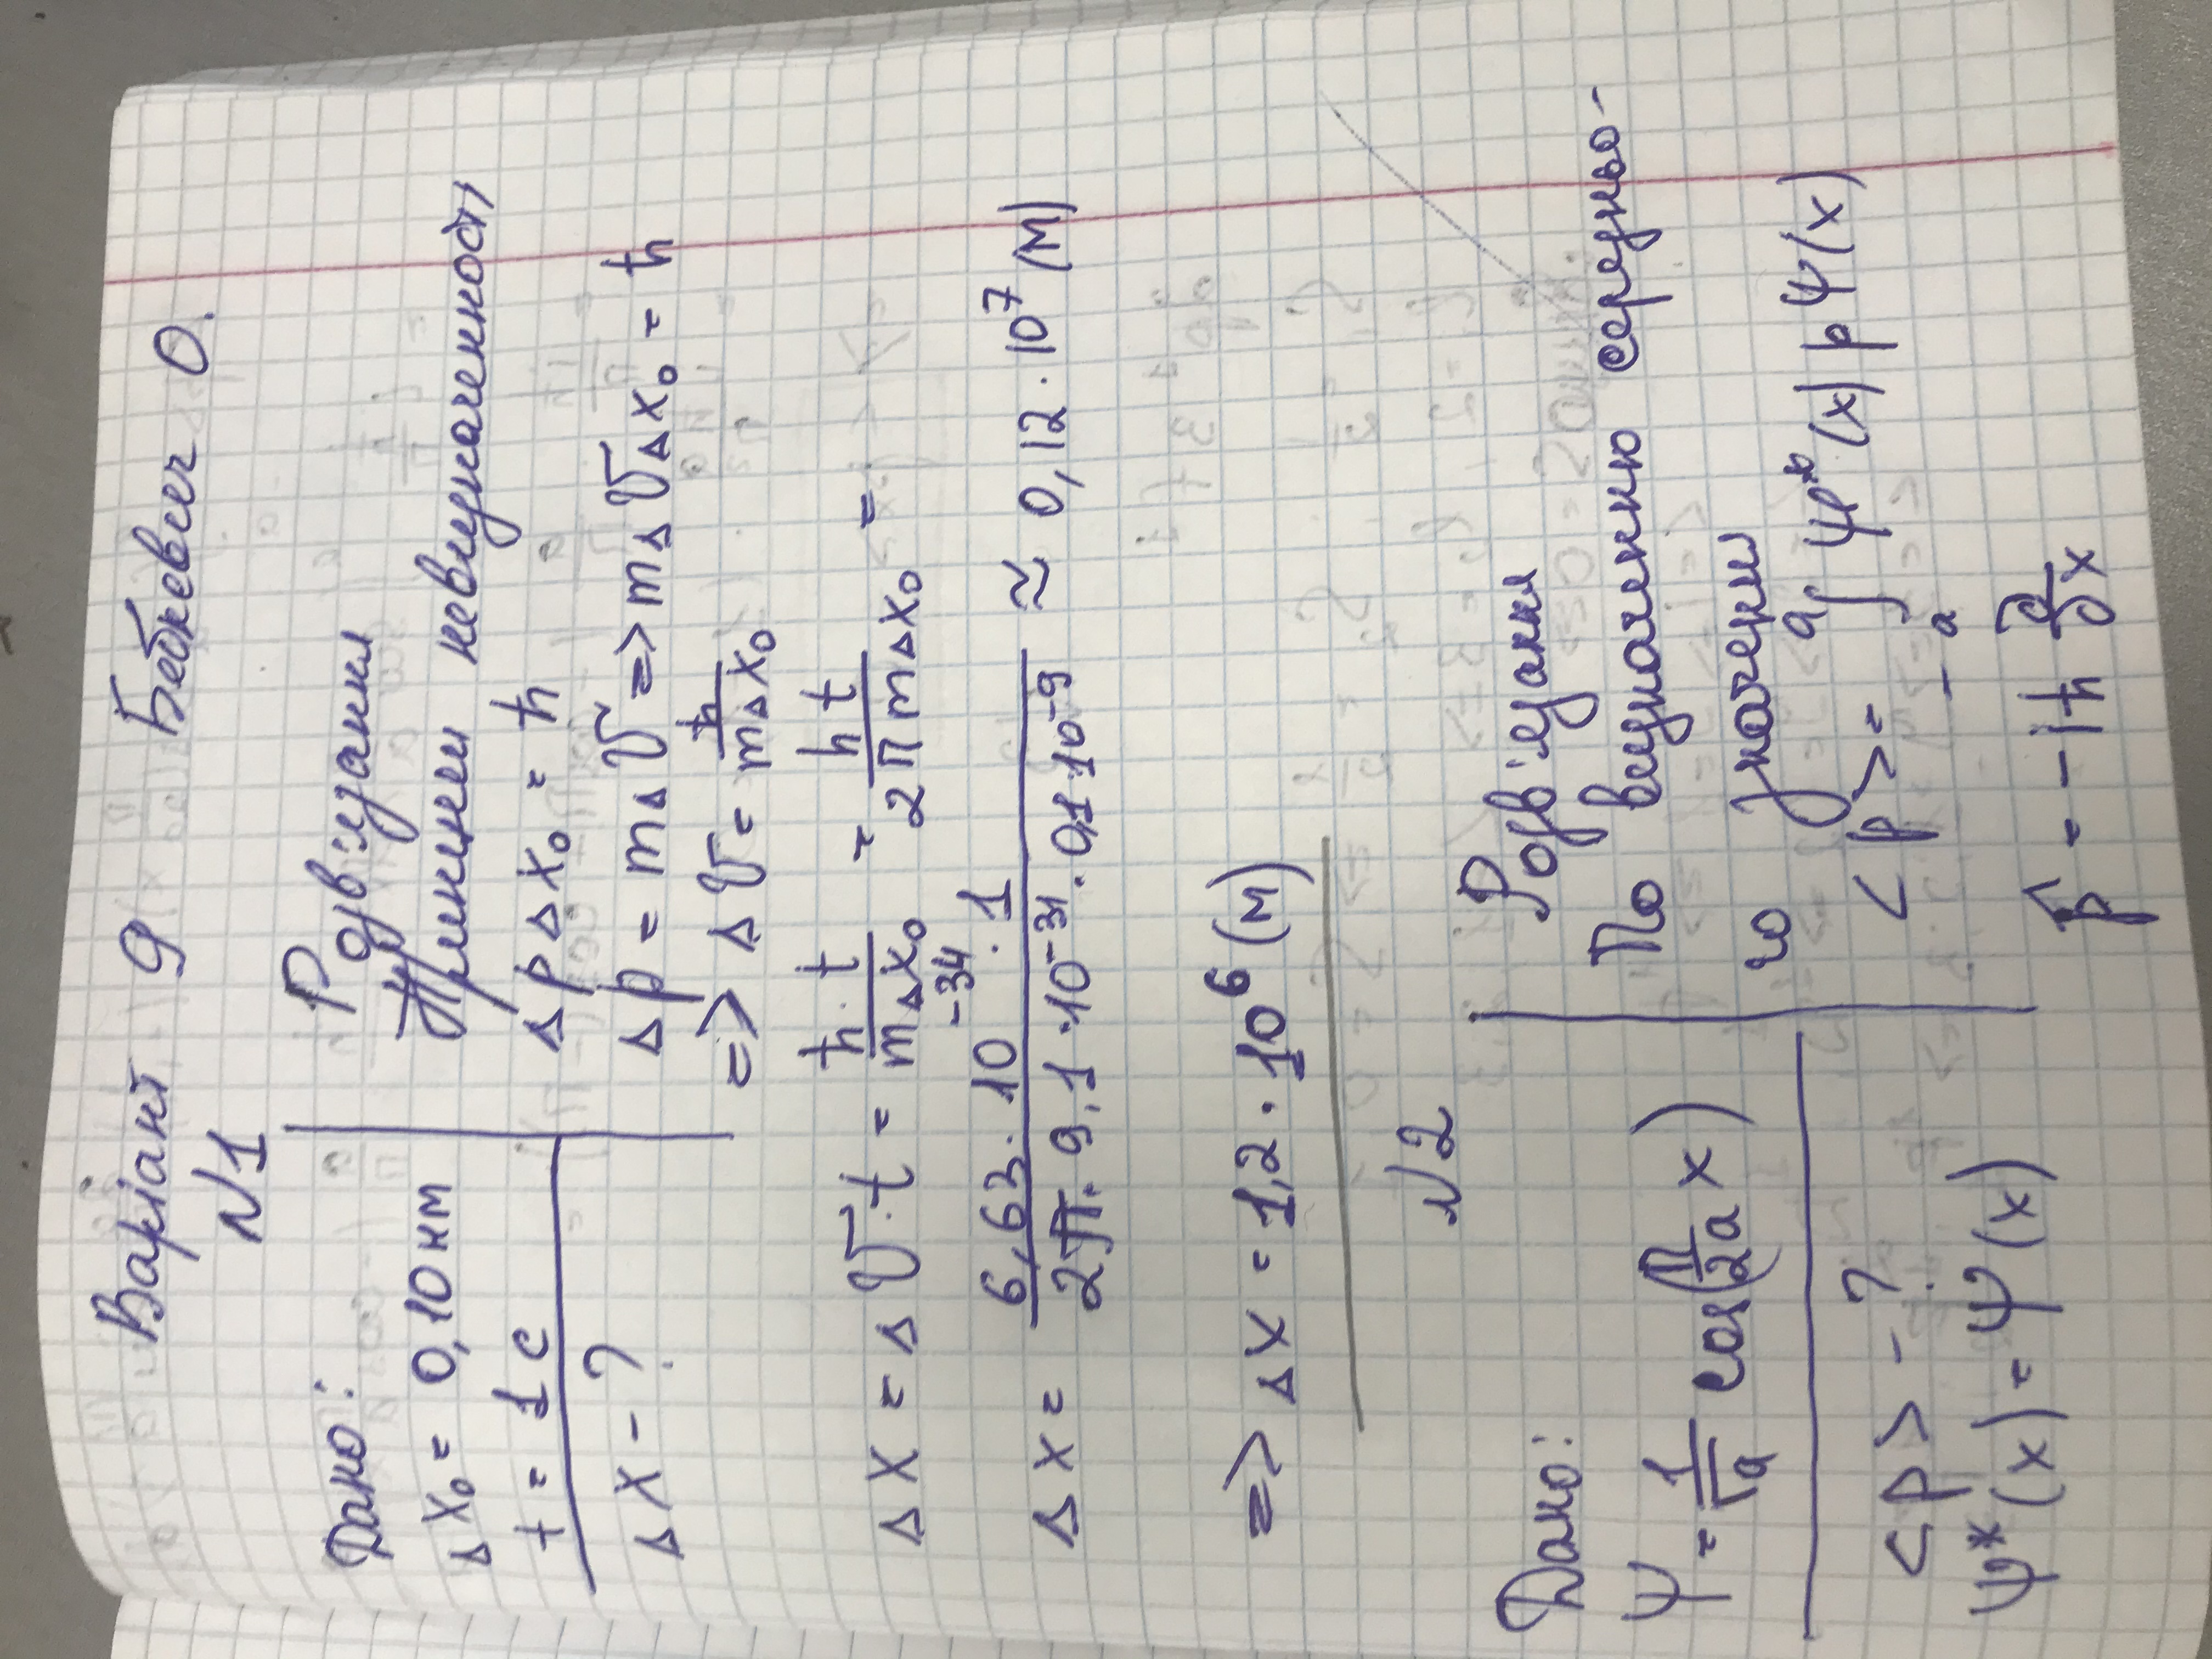 Варіант 9 Бебкевич О.
N1
Дано:
Δx₀ = 0,10 нм
t = 1 c
Δx - ?
Розв'язання
Принцип невизначенності
Δp Δx₀ = ħ
Δp = mΔV => mΔVΔx₀ = ħ
=> ΔV = ħ/(mΔx₀)
Δx = ΔV·t = (ħ·t)/(mΔx₀) = (ht)/(2πmΔx₀) =
Δx = (6,63·10⁻³⁴·1)/(2π·9,1·10⁻³¹·0,1·10⁻⁹) ≈ 0,12·10⁷ (м)
=> Δx = 1,2·10⁶ (м)
N2
Дано:
Ψ = 1/√a cos(π/2a x)
<p> - ?
Ψ*(x) = Ψ(x)
Розв'язання
По визначенню середньо-
го значення
<p> = ∫₋ₐᵃ Ψ*(x) p Ψ(x)
p̂ = -iħ ∂/∂x